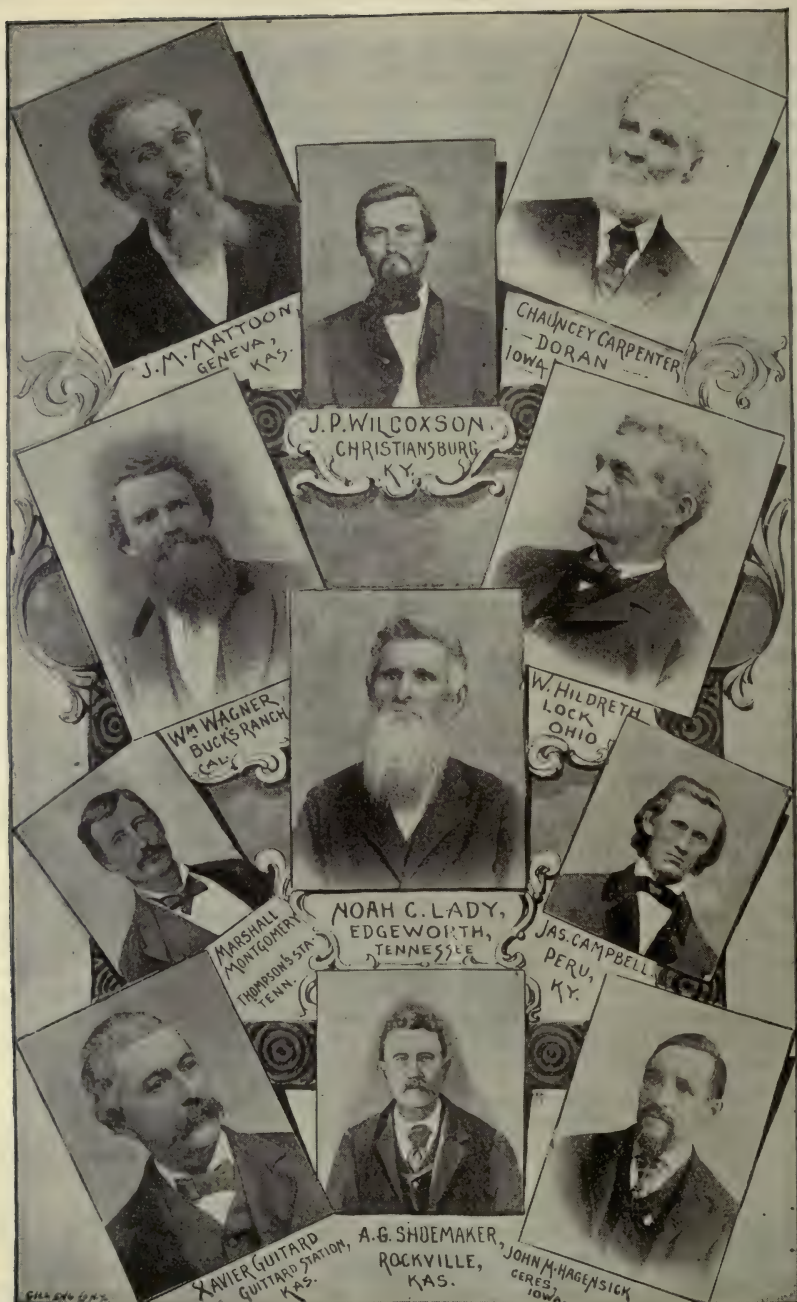 J. M. MATTOON,
GENEVA,
KAS.
J. P. WILCOXSON.
CHRISTIANSBURG
KY.
CHAUNCEY CARPENTER
DORAN
IOWA
WM WAGNER
BUCK'S RANCH
CAL.
W. HILDRETH
LOCK
OHIO
MARSHALL
MONTGOMERY
THOMPSON'S STA.
TENN.
NOAH C. LADY,
EDGEWORTH,
TENNESSEE
JAS. CAMPBELL.
PERU,
KY.
XAVIER GUITARD
GUITTARD STATION,
KAS.
A. G. SHUEMAKER,
ROCKVILLE,
KAS.
JOHN M. HAGENSICK
CERES,
IOWA